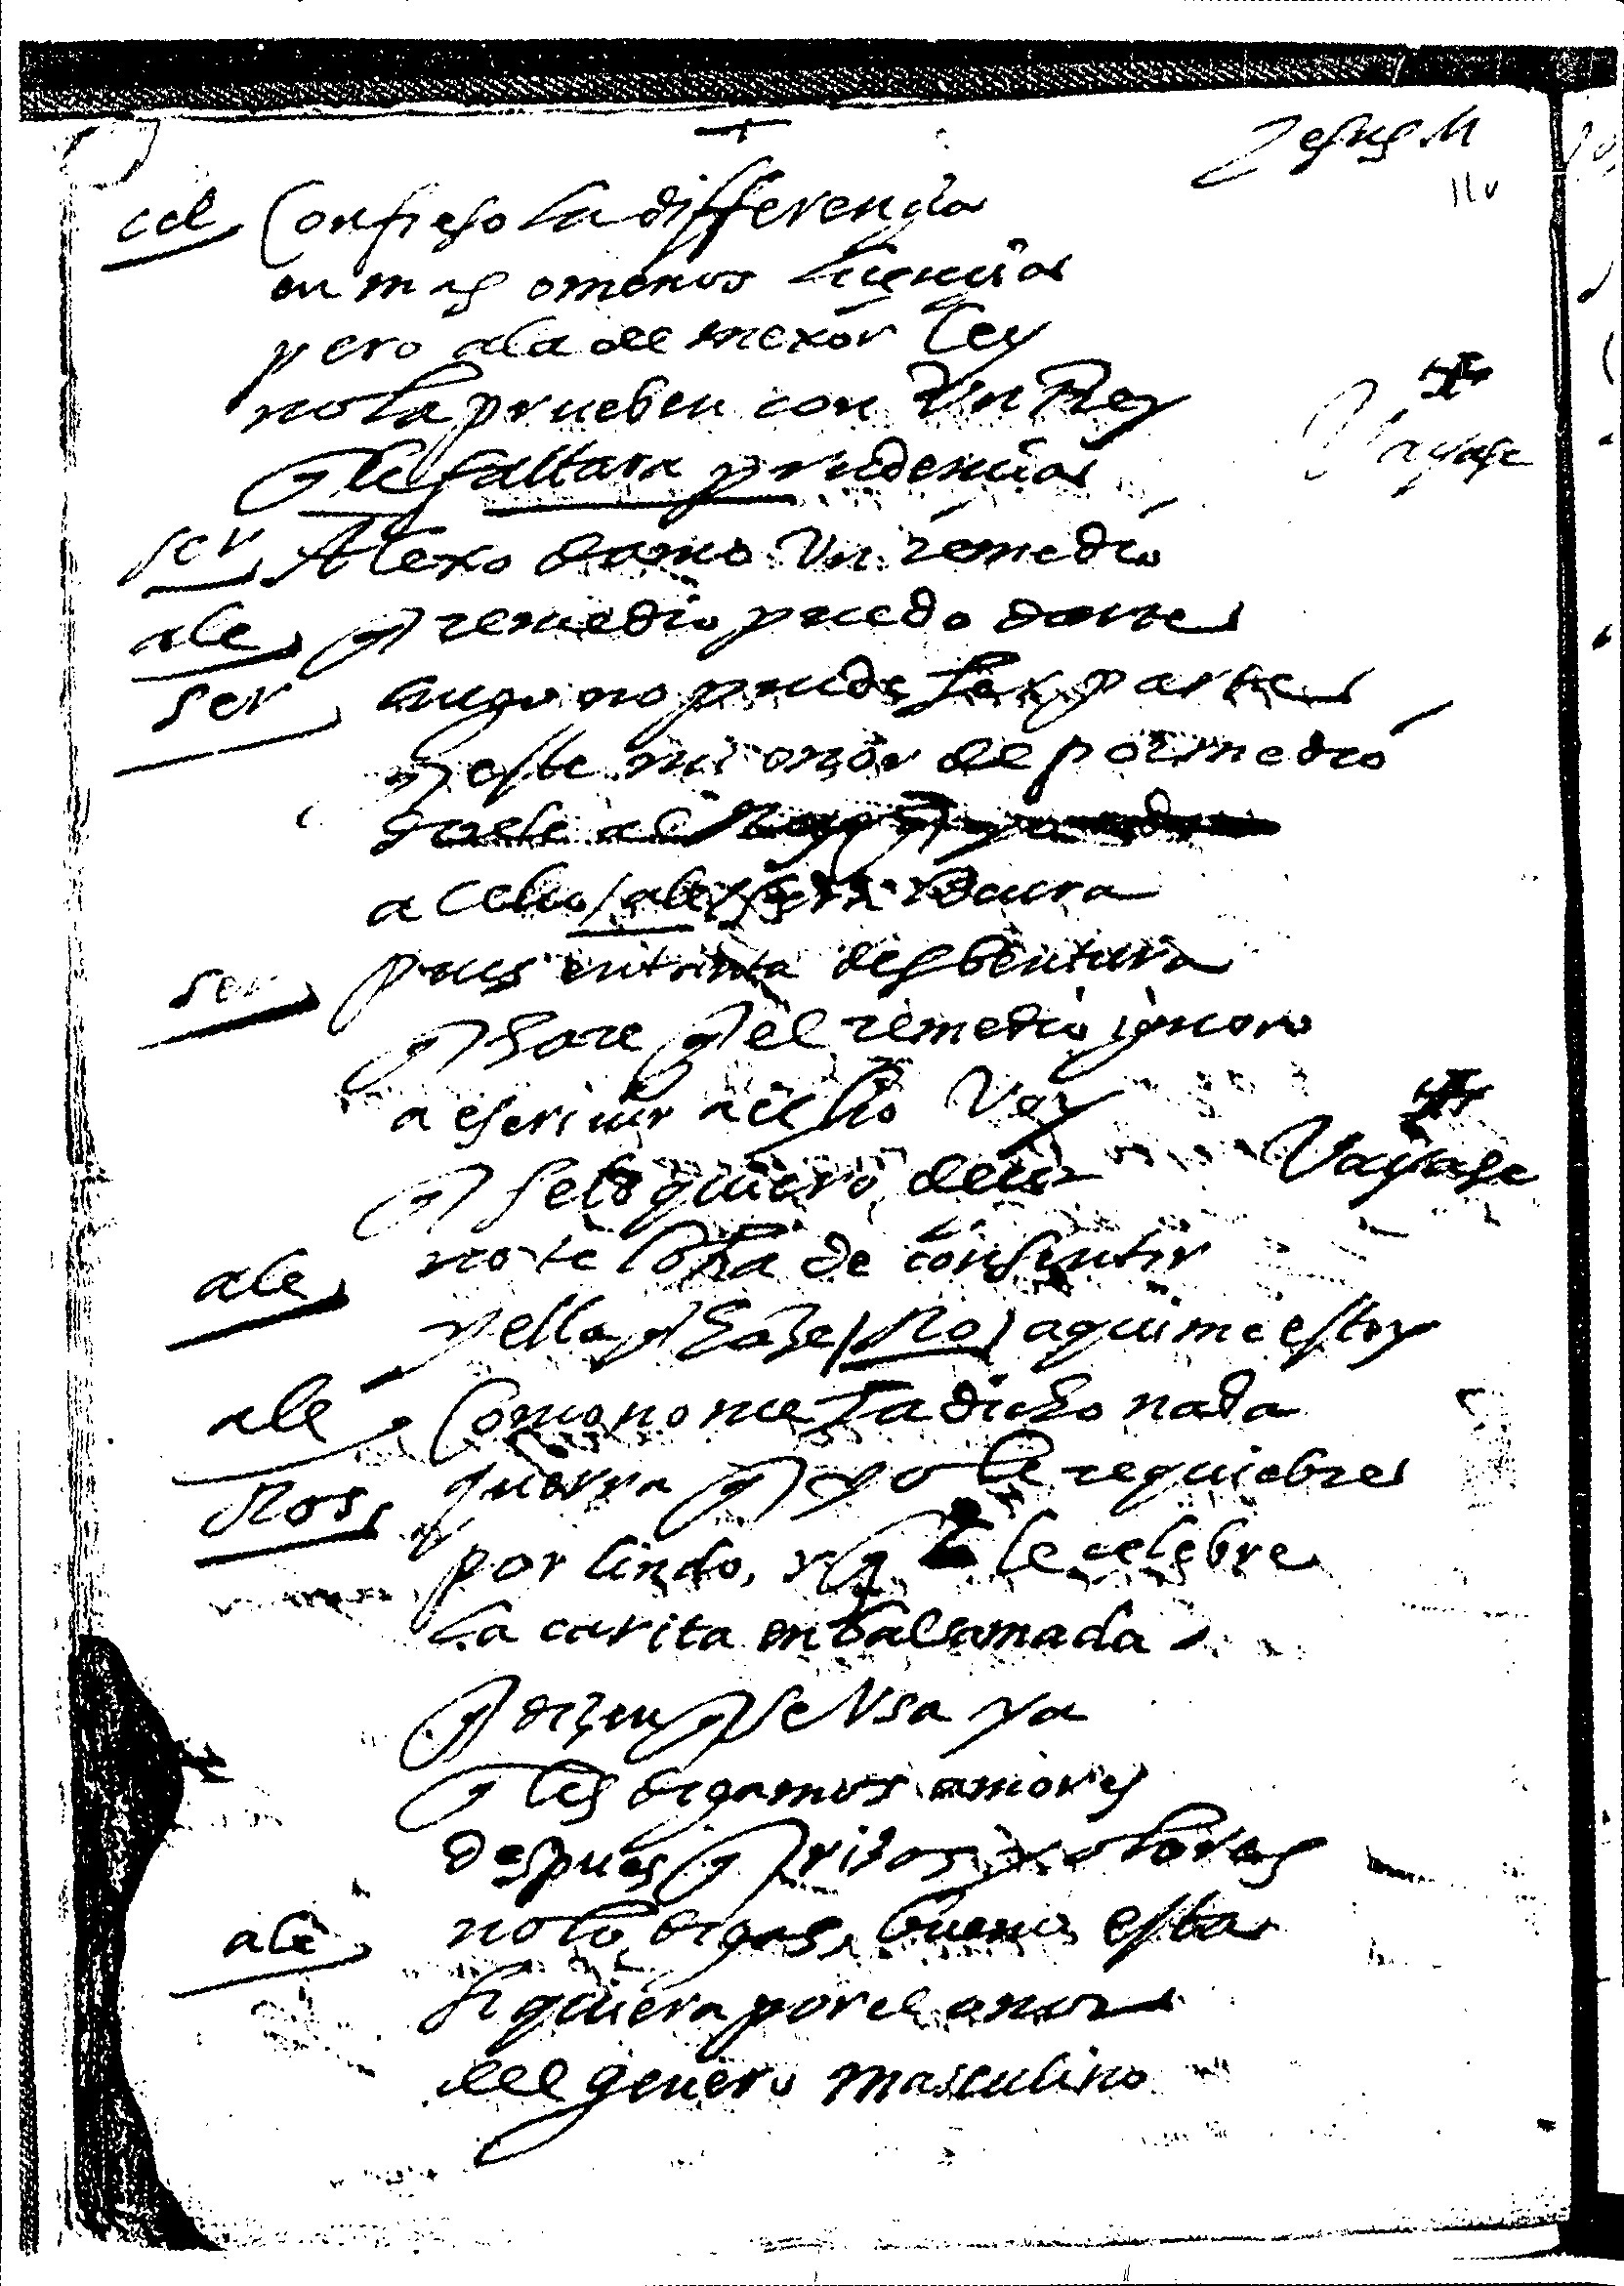 Jesus M
11v
cel Confieso la differencia
en mas o menos licencia
pero a la del mexor ley
no la prueben con Un Rey
q le faltara prudencia
Vayase
ser Alexo dame Un remedio
ale q remedio puedo darte
ser luego no puede ser parte
q este mi onor de por medio
a Celio / ale / locura
ser pues en tanta desbentura
q hare q el remedio ignoro
a escriuir a Celio Voy
q se lo quiero decir Vayase
ale no te lo ha de consentir
y ella q haze / Ro / aqui me estoy
ale Como no me ha dicho nada
Ros querra q yo le requiebre
por lindo, y q le celebre
la carita enbalsamada
q dizen q se Vsa ya
q les digamos amores
despues q rizos y olores
ale no lo digas, bueno esta
si quiera por el onor
del genero masculino